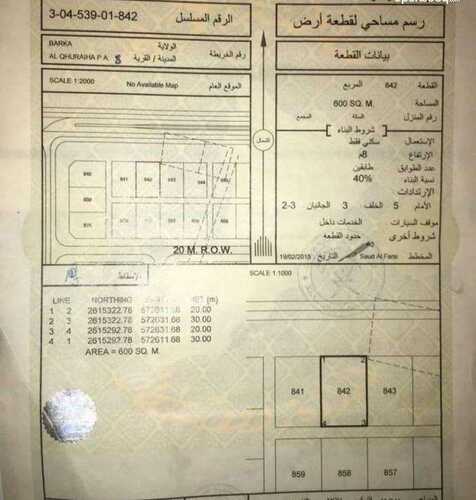 3-04-539-01-842
الرقم المسلسل
رسم مساحي لقطعة أرض
BARKA
الولاية
AL QHURAIHA P.A. 8
المدينة / القرية
رقم الخريطة
بيانات القطعة
SCALE 1:2000
No Available Map
الموقع العام
القطعة 842 المربع
المساحة 600 SQ. M.
رقم المنزل السكة المجمع
شروط البناء
الإستعمال سكني فقط
الإرتفاع 8م
عدد الطوابق طابقين
نسبة البناء 40%
الإرتدادات
الأمام 5 الخلف 3 الجانبان 2-3
موقف السيارات الخدمات داخل
شروط أخرى حدود القطعه
المخطط Saud Al Farsi التاريخ 19/02/2015
الشمال
840 841 842 843 844
20 M. R.O.W.
الإسقاط
SCALE 1:1000
LINE NORTHING (m)
1 2 2615322.78 20.00
2 3 2615322.78 572631.68 30.00
3 4 2615292.78 572631.68 20.00
4 1 2615292.78 572611.68 30.00
AREA = 600 SQ. M.
1 2
841 842 843
4 3
859 858 857